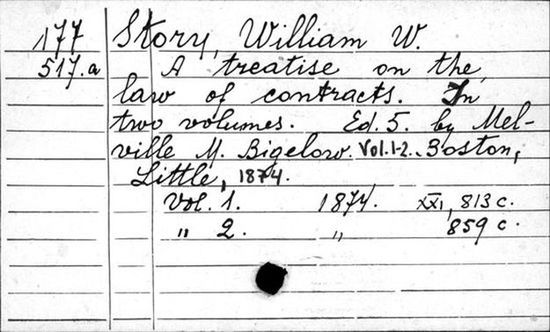 177 Story, William W.
517.a A treatise on the
law of contracts. In
two volumes. Ed. 5. by Mel-
ville M. Bigelow. Vol.1-2. Boston,
Little, 1874.
Vol. 1. 1874. XXI, 813 c.
" 2. " 859 c.